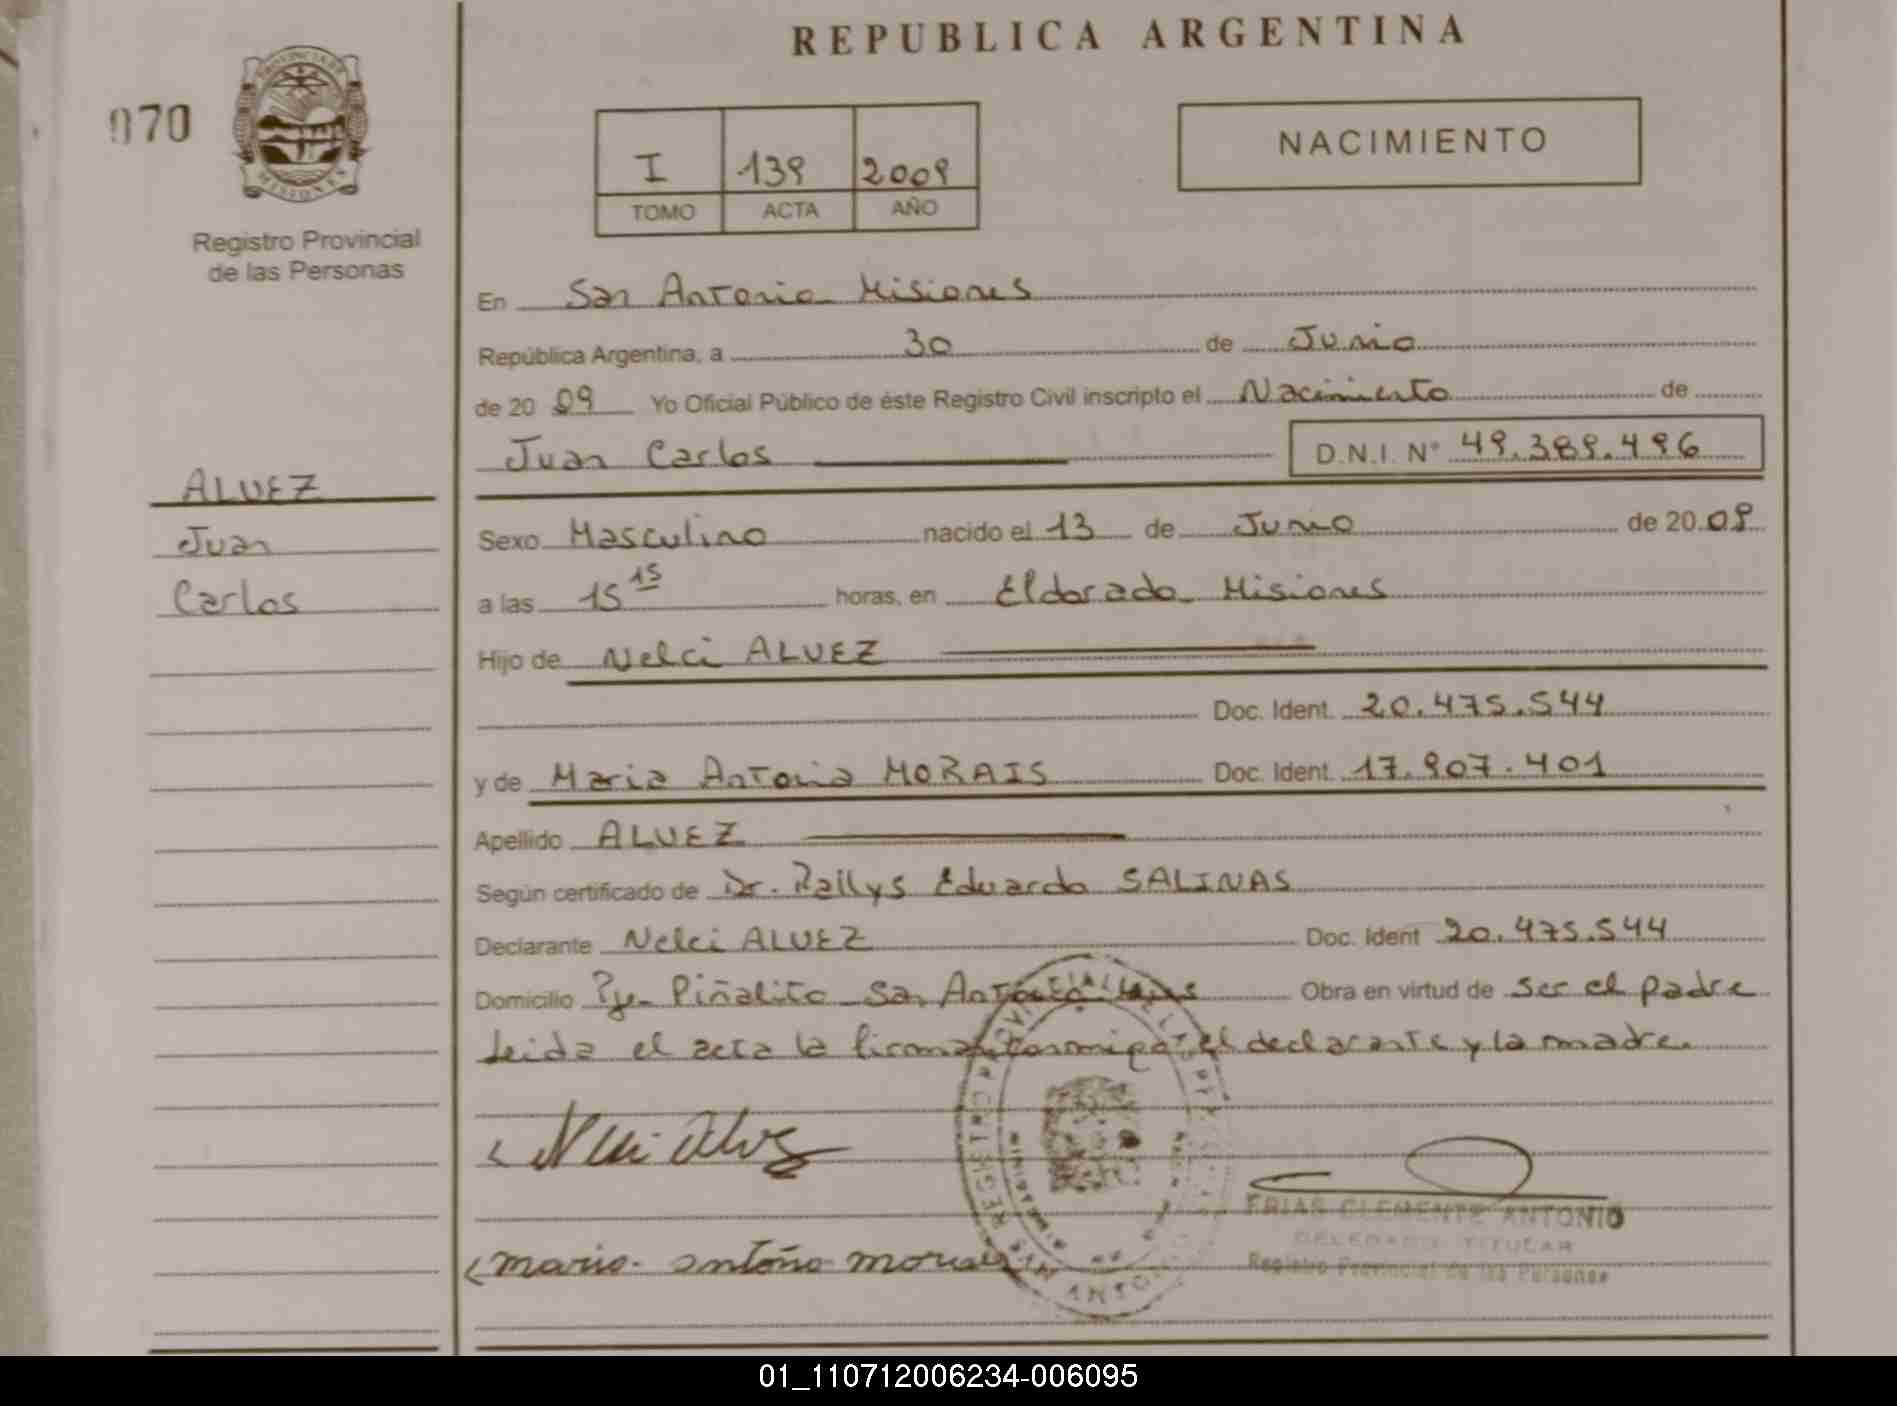 REPUBLICA ARGENTINA
070
PROVINCIA DE
MISIONES
Registro Provincial
de las Personas
I 139 2009
TOMO ACTA AÑO
NACIMIENTO
En San Antonio Misiones
República Argentina, a 30 de Junio
de 20 09 Yo Oficial Público de éste Registro Civil inscripto el Nacimiento de
Juan Carlos D.N.I. N° 49.389.496
ALVEZ
Juan
Carlos
Sexo Masculino nacido el 13 de Junio de 20.09
a las 15 15 horas, en Eldorado Misiones
Hijo de Nelci ALVEZ
Doc. Ident. 20.475.544
y de Maria Antonia MORAIS Doc. Ident. 17.907.401
Apellido ALVEZ
Según certificado de Dr. Rallys Eduardo SALINAS
Declarante Nelci ALVEZ Doc. Ident 20.475.544
Domicilio Piñalito San Antonio Obra en virtud de ser el padre
Leida el acta la firman conmigo el declarante y la madre.
FRIAS CLEMENTE ANTONIO
DELEGADO TITULAR
Registro Provincial de las Personas
01_110712006234-006095